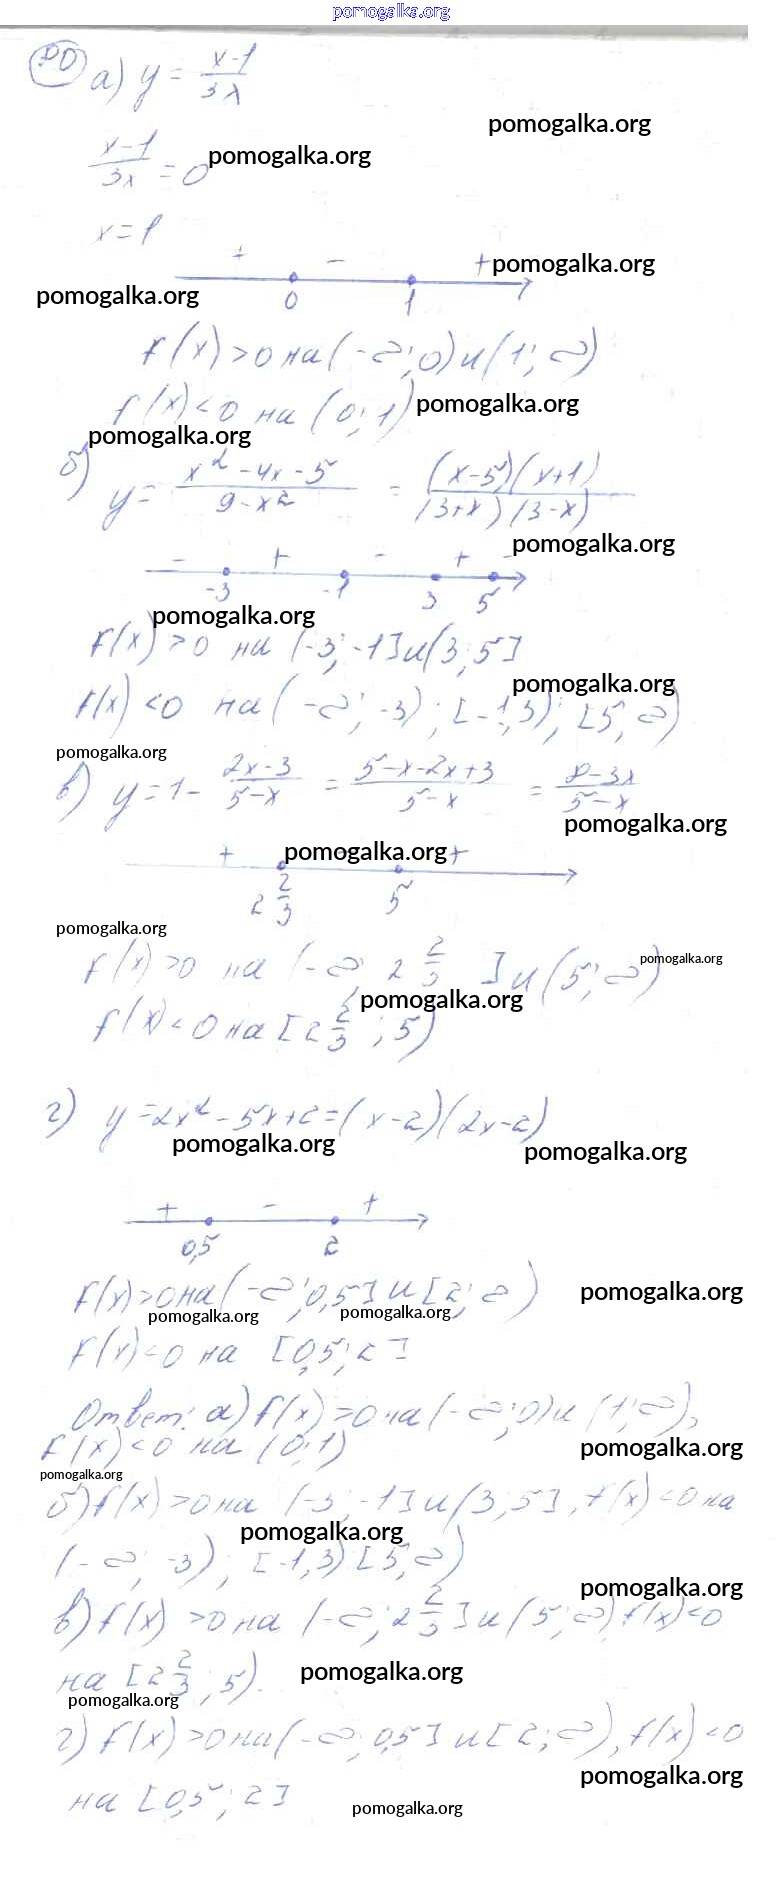 pomogalka.org
а) y = (x-1)/(3x)
pomogalka.org
(x-1)/(3x) = 0 pomogalka.org
x = 1
+ - + pomogalka.org
pomogalka.org 0 1
f(x) > 0 на (-∞; 0) и (1; ∞)
f(x) < 0 на (0; 1) pomogalka.org
pomogalka.org
б) y = (x² - 4x - 5)/(9 - x²) = ((x-5)(x+1))/((3+x)(3-x))
pomogalka.org
- + - + -
-3 -1 3 5
pomogalka.org
f(x) > 0 на (-3; -1] и (3; 5]
pomogalka.org
f(x) < 0 на (-∞; -3); [-1; 3); [5; ∞)
pomogalka.org
в) y = 1 - (2x-3)/(5-x) = (5-x-2x+3)/(5-x) = (8-3x)/(5-x)
pomogalka.org
+ pomogalka.org +
2 2/3 5
pomogalka.org
f(x) > 0 на (-∞; 2 2/3] и (5; ∞) pomogalka.org
pomogalka.org
f(x) < 0 на [2 2/3; 5)
г) y = 2x² - 5x + 2 = (x-2)(2x-2)
pomogalka.org pomogalka.org
+ - +
0,5 2
f(x) > 0 на (-∞; 0,5] и [2; ∞) pomogalka.org
pomogalka.org pomogalka.org
f(x) < 0 на [0,5; 2]
Ответ: а) f(x) > 0 на (-∞; 0) и (1; ∞),
f(x) < 0 на (0; 1) pomogalka.org
pomogalka.org
б) f(x) > 0 на (-3; -1] и (3; 5], f(x) < 0 на
pomogalka.org
(-∞; -3); [-1, 3) [5, ∞)
pomogalka.org
в) f(x) > 0 на (-∞; 2 2/3] и (5; ∞) f(x) < 0
на [2 2/3; 5). pomogalka.org
pomogalka.org
г) f(x) > 0 на (-∞; 0,5] и [2; ∞), f(x) < 0
pomogalka.org
на [0,5; 2]
pomogalka.org